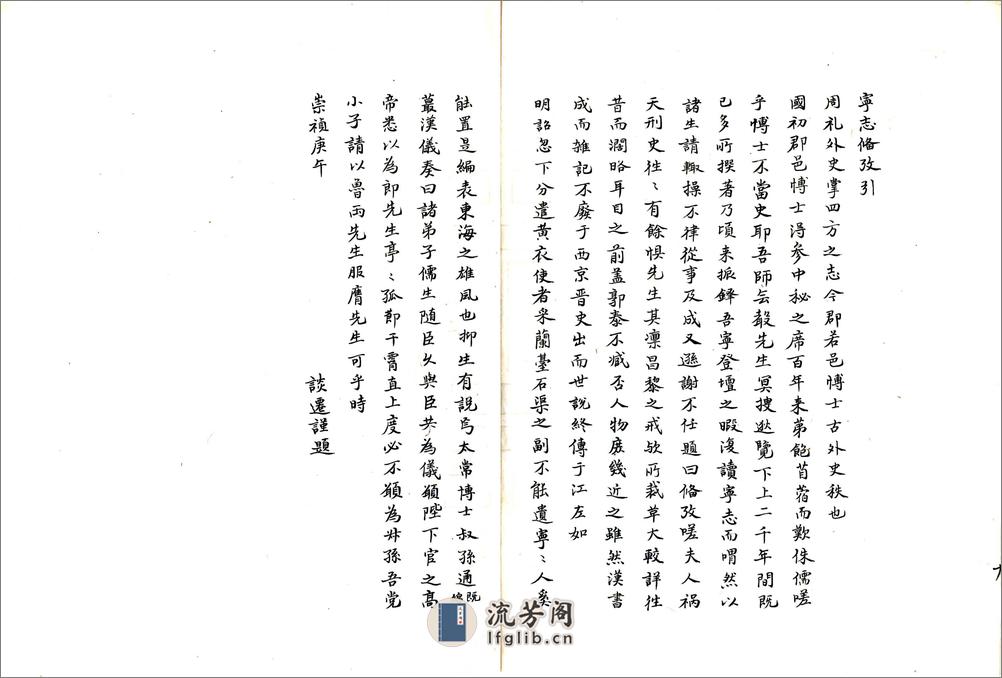 寧志俻攷引
周礼外史掌四方之志今郡若邑博士古外史秩也
國初郡邑博士淂参中秘之席百年来苐飽苜蓿而歎侏儒嗟
乎博士不當史耶吾師玄穀先生冥搜逖覽下上二千年間既
已多所撰著乃頃来振鐸吾寧登壇之暇浚讀寧志而喟然以
諸生請輙操不律從事及成又遜謝不仕題曰俻攷嗟夫人禍
天刑史徃〻有餘惧先生其凛昌黎之戒欤所裁草大較詳徃
昔而濶略耳目之前盖郭泰不臧否人物庻幾近之雖然漢書
成而雑記不廢于西京晋史出而世説終傳于江左如
明詔忽下分遣黃衣使者采蘭臺石渠之副不能遺寧〻人奚
能置是編表東海之雄風也抑生有說焉太常博士叔孫通既
蕞漢儀奏曰諸弟子儒生随臣久與臣共為儀願陛下官之髙
帝悉以為郎先生亭〻孤節干霄直上度必不願為叔孫吾党
小子請以魯両先生服膺先生可乎時
崇禎庚午
談遷謹題
流芳阁
lfglib.cn